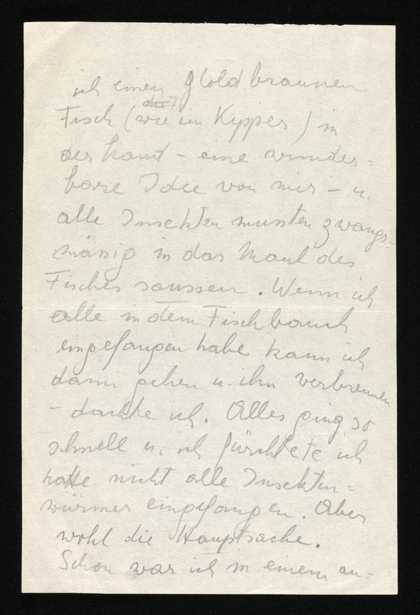 ich einen Goldbraunen
Fisch (wie ein Kypper) in
der Hand – eine wunder=
bare Idee von mir – u.
alle Insekten mussten zwangs=
mässig in das Maul des
Fisches saussen. Wenn ich
alle in dem Fischbauch
eingefangen habe kann ich
dann gehen u. ihn verbrennen
– dachte ich. Alles ging so
schnell u. ich fürchtete ich
hatte nicht alle Insekten=
würmer eingefangen. Aber
wohl die Hauptsache.
Schon war ich in einem an-